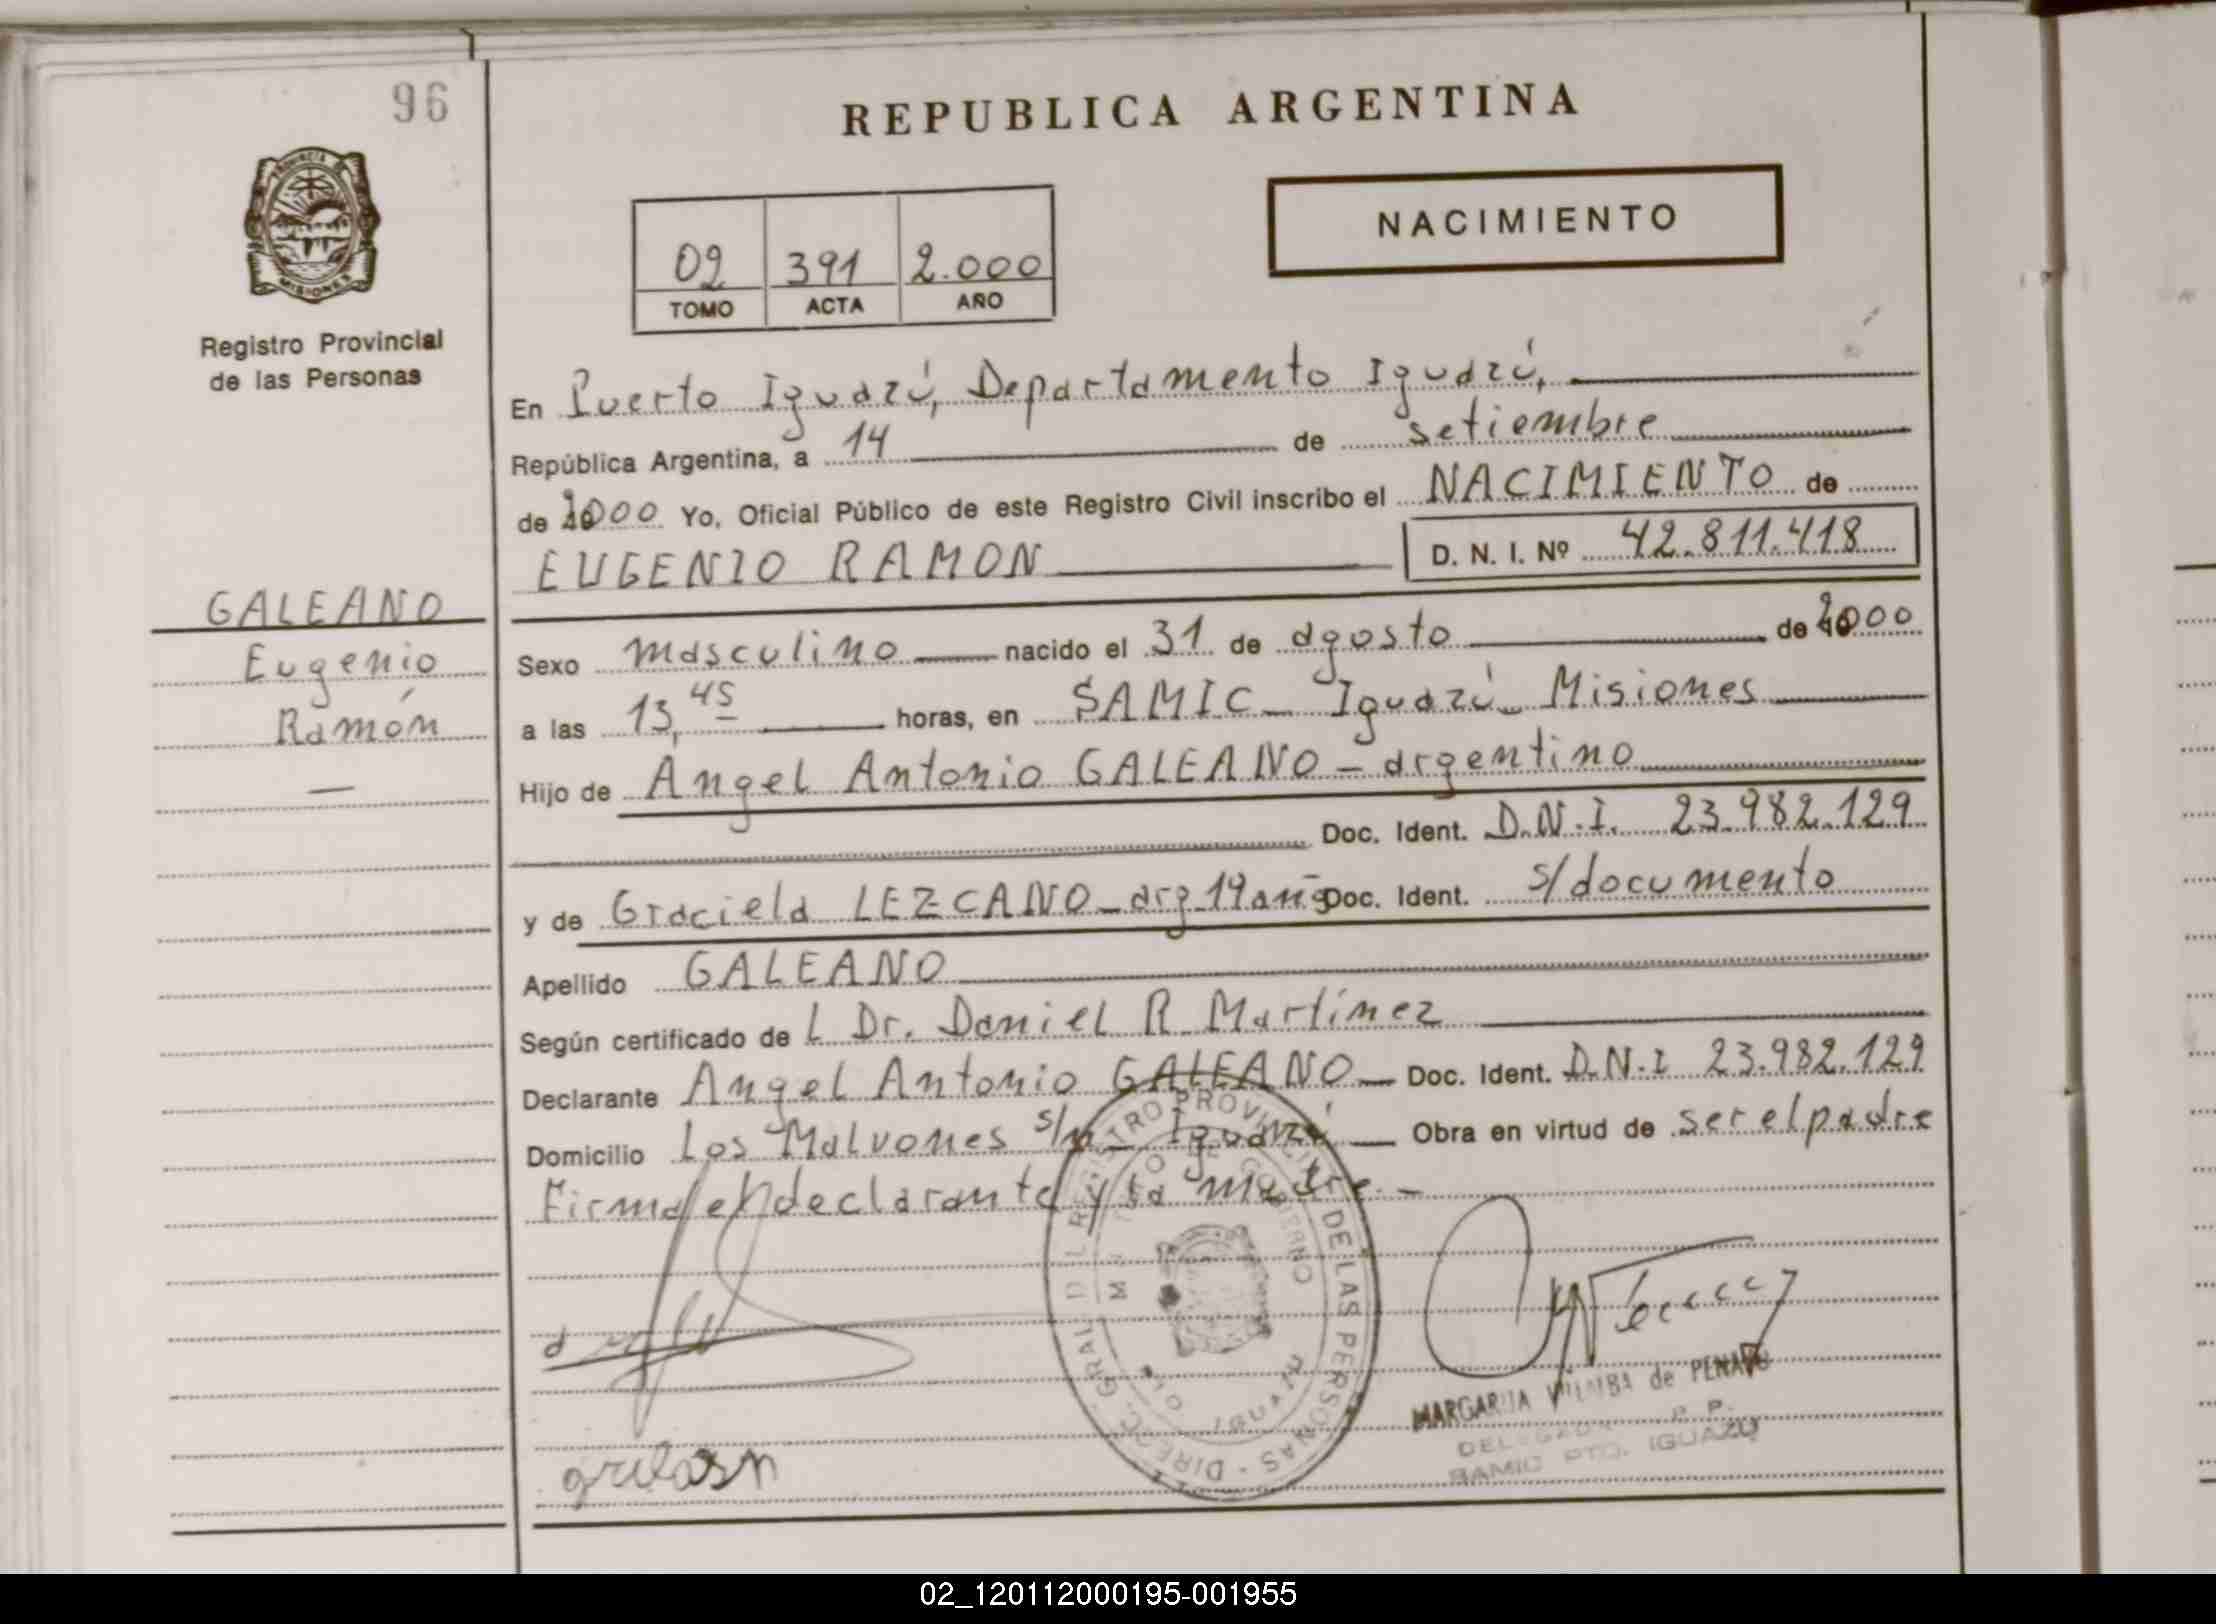 96
REPUBLICA ARGENTINA
PROVINCIA DE
MISIONES
Registro Provincial
de las Personas
02 391 2.000
TOMO ACTA AÑO
NACIMIENTO
En Puerto Iguazú, Departamento Iguazú,
República Argentina, a 14 de setiembre
de 2000 Yo, Oficial Público de este Registro Civil inscribo el NACIMIENTO de
EUGENIO RAMON D. N. I. Nº 42.811.418
GALEANO
Eugenio
Ramón
Sexo masculino nacido el 31 de agosto de 2000
a las 13,45 horas, en SAMIC - Iguazú - Misiones
Hijo de Angel Antonio GALEANO - argentino
Doc. Ident. D.N.I. 23.982.129
y de Graciela LEZCANO - arg 19 años Doc. Ident. s/documento
Apellido GALEANO
Según certificado de L Dr. Daniel R Martínez
Declarante Angel Antonio GALEANO - Doc. Ident. D.N.I 23.982.129
Domicilio Los Malvones s/n - Iguazú - Obra en virtud de ser el padre
Firma el declarante y la madre. -
DIREC. GRAL. DEL REGISTRO PROVINCIAL DE LAS PERSONAS
GOBIERNO
MARGARITA VILLALBA de PENAYO
DELEGADA R. P. P.
SAMIC PTO. IGUAZU
02_120112000195-001955